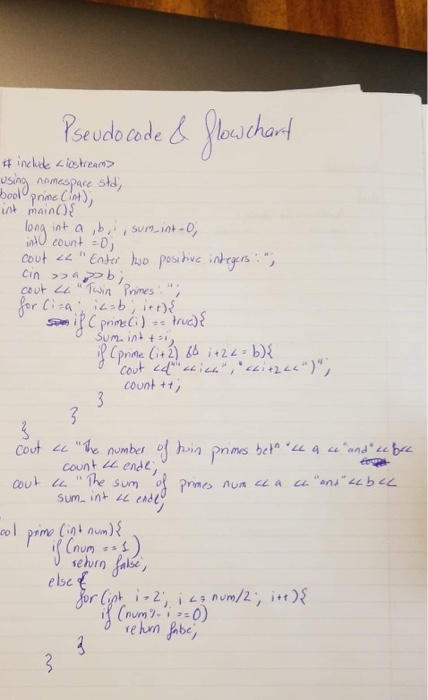 Pseudocode & flowchart
# include <iostream>
using namespace std;
bool prime(int);
int main(){
long int a, b, i, sum_int=0;
int count =0;
cout << "Enter two positive integers: ";
cin >>a>>b;
cout << "Twin Primes: ";
for (i=a; i<=b; i++){
if (prime(i) == true){
sum_int +=i;
if (prime (i+2) && i+2<=b){
cout <<"("<<i<<","<<i+2<<")";
count ++;
}
}
}
cout << "The number of twin primes betn "<< a <<"and"<<b<<
count << endl;
cout << "The sum of primes num << a <<"and"<<b<<
sum_int << endl;
ool prime (int num){
if (num == 1)
return false;
else {
for(int i=2; i <= num/2; i++){
if (num% i ==0)
return false;
}
}